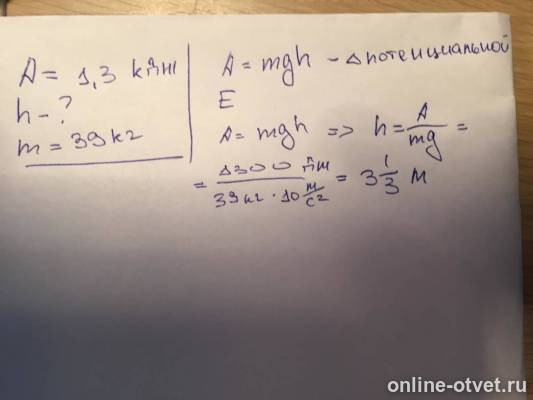 A = 1,3 кДж
h - ?
m = 39 кг
A = mgh - Δ потенциальной
E
A = mgh => h = A/mg =
= 1300 Дж / 39 кг · 10 м/с2 = 3 1/3 м
online-otvet.ru